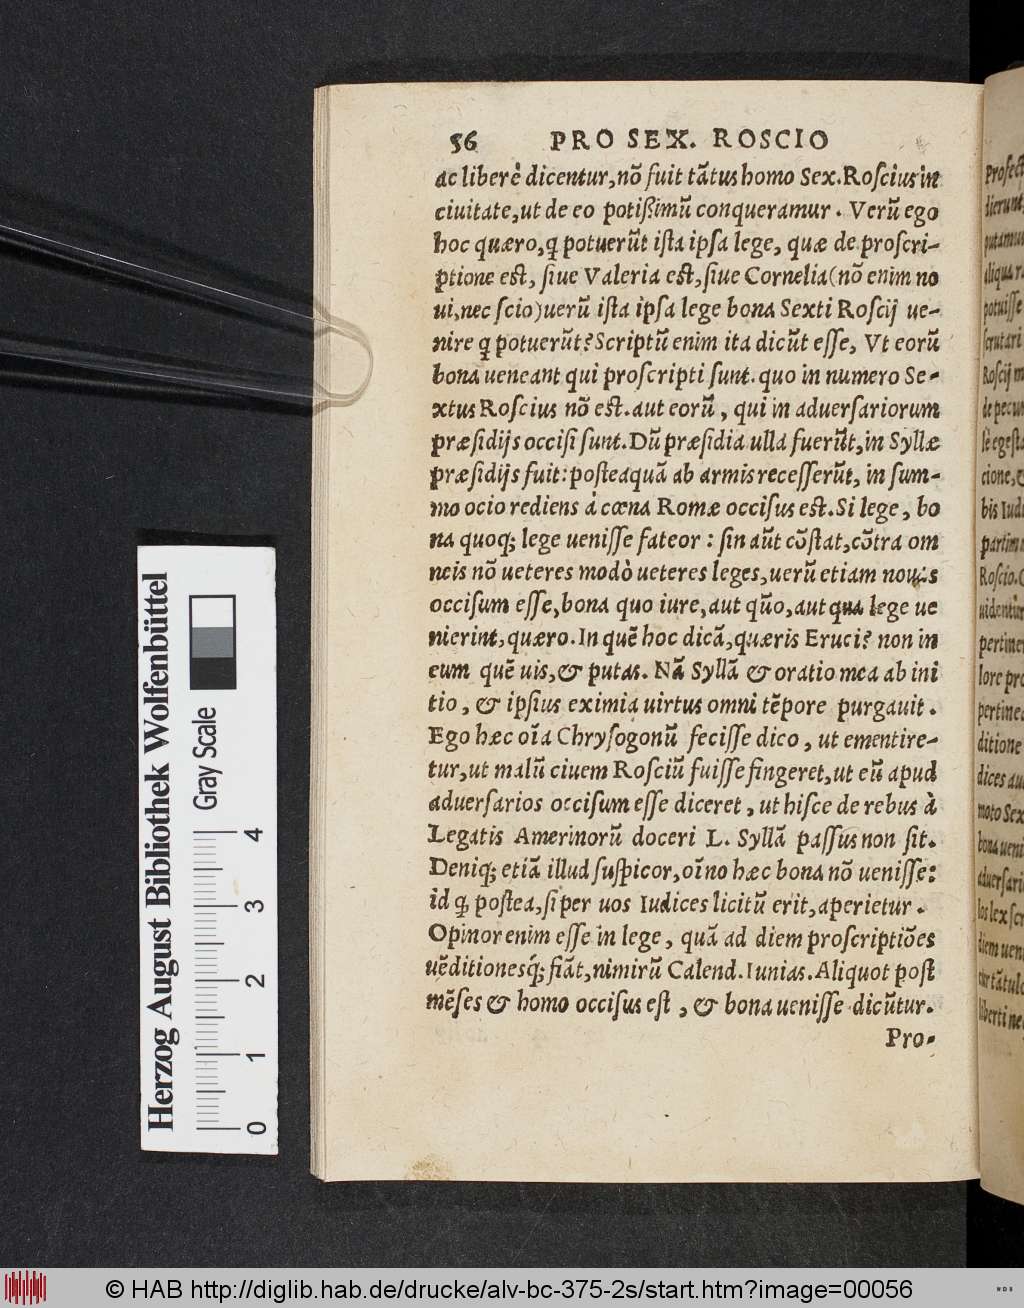 56 PRO SEX. ROSCIO
ac liberè dicentur, nõ fuit tãtus homo Sex. Roſcius in
ciuitate, ut de eo potißimũ conqueramur. Verũ ego
hoc quæro, q̃ potuerũt iſta ipſa lege, quæ de proſcri-
ptione est, ſiue Valeria est, ſiue Cornelia (nõ enim no
ui, nec ſcio) uerũ iſta ipſa lege bona Sexti Roſcij ue-
nire q̃ potuerũt? Scriptũ enim ita dicũt eſſe, Vt eorũ
bona ueneant qui proſcripti ſunt. quo in numero Se-
xtus Roſcius nõ est. aut eorũ, qui in aduerſariorum
præſidijs occiſi ſunt. Dũ præſidia ulla fuerũt, in Syllæ
præſidijs fuit: poſteaquã ab armis receſſerũt, in ſum-
mo ocio rediens à cœna Romæ occiſus est. Si lege, bo
na quoq; lege ueniſſe fateor: ſin aũt cõſtat, cõtra om
neis nõ ueteres modò ueteres leges, uerũ etiam nouas
occiſum eſſe, bona quo iure, aut qũo, aut qua lege ue
nierint, quæro. In quẽ hoc dicã, quæris Eruci? non in
eum quẽ uis, & putas. Nã Syllã & oratio mea ab ini
tio, & ipſius eximia uirtus omni tẽpore purgauit.
Ego hæc oĩa Chryſogonũ feciſſe dico, ut ementire-
tur, ut malũ ciuem Roſciũ fuiſſe fingeret, ut eũ apud
aduerſarios occiſum eſſe diceret, ut hiſce de rebus à
Legatis Amerinorũ doceri L. Syllã paſſus non ſit.
Deniq; etiã illud ſuſpicor, oĩno hæc bona nõ ueniſſe:
id q̃ poſtea, ſi per uos Iudices licitũ erit, aperietur.
Opinor enim eſſe in lege, quã ad diem proſcriptiões
uẽditionesq́; fiãt, nimirũ Calend. Iunias. Aliquot poſt
mẽſes & homo occiſus eſt, & bona ueniſſe dicũtur.
Pro-
Herzog August Bibliothek Wolfenbüttel
Gray Scale
0 1 2 3 4
© HAB http://diglib.hab.de/drucke/alv-bc-375-2s/start.htm?image=00056